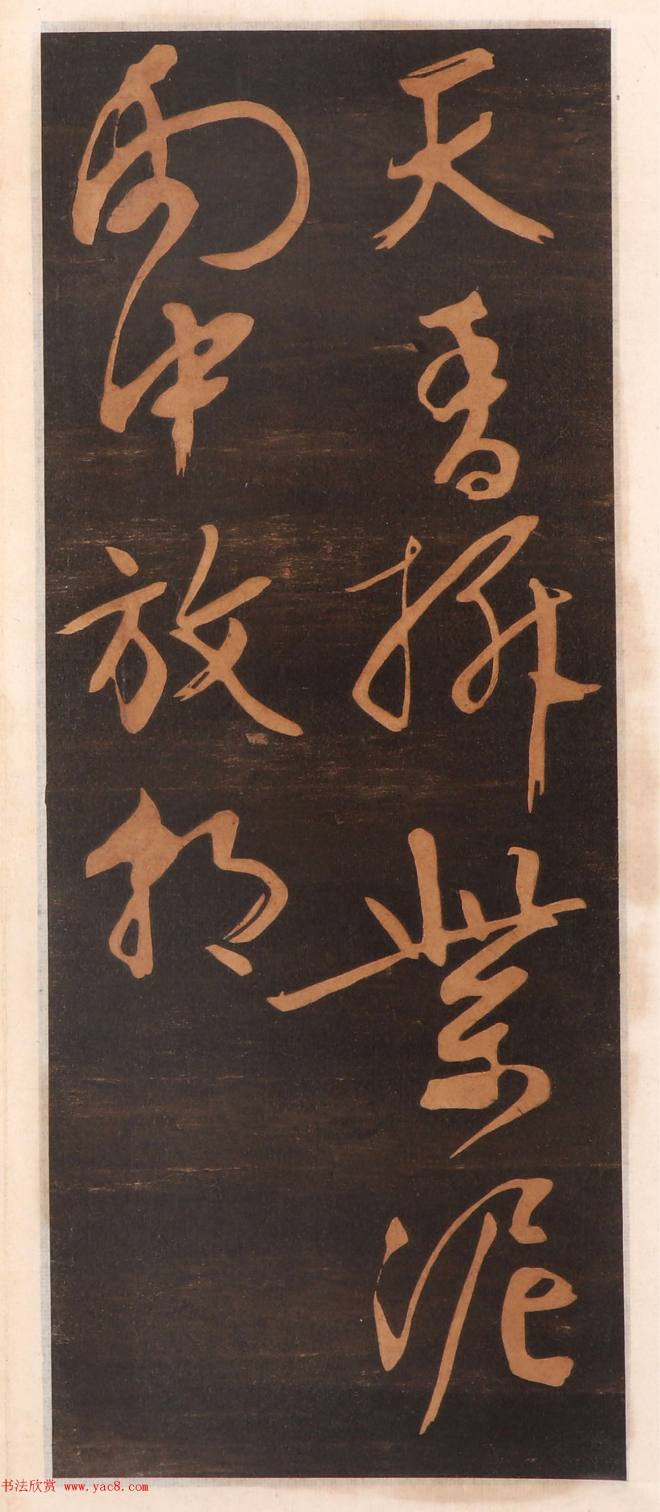 天香紫泥
雨中放朝
书法欣赏 www.yac8.com